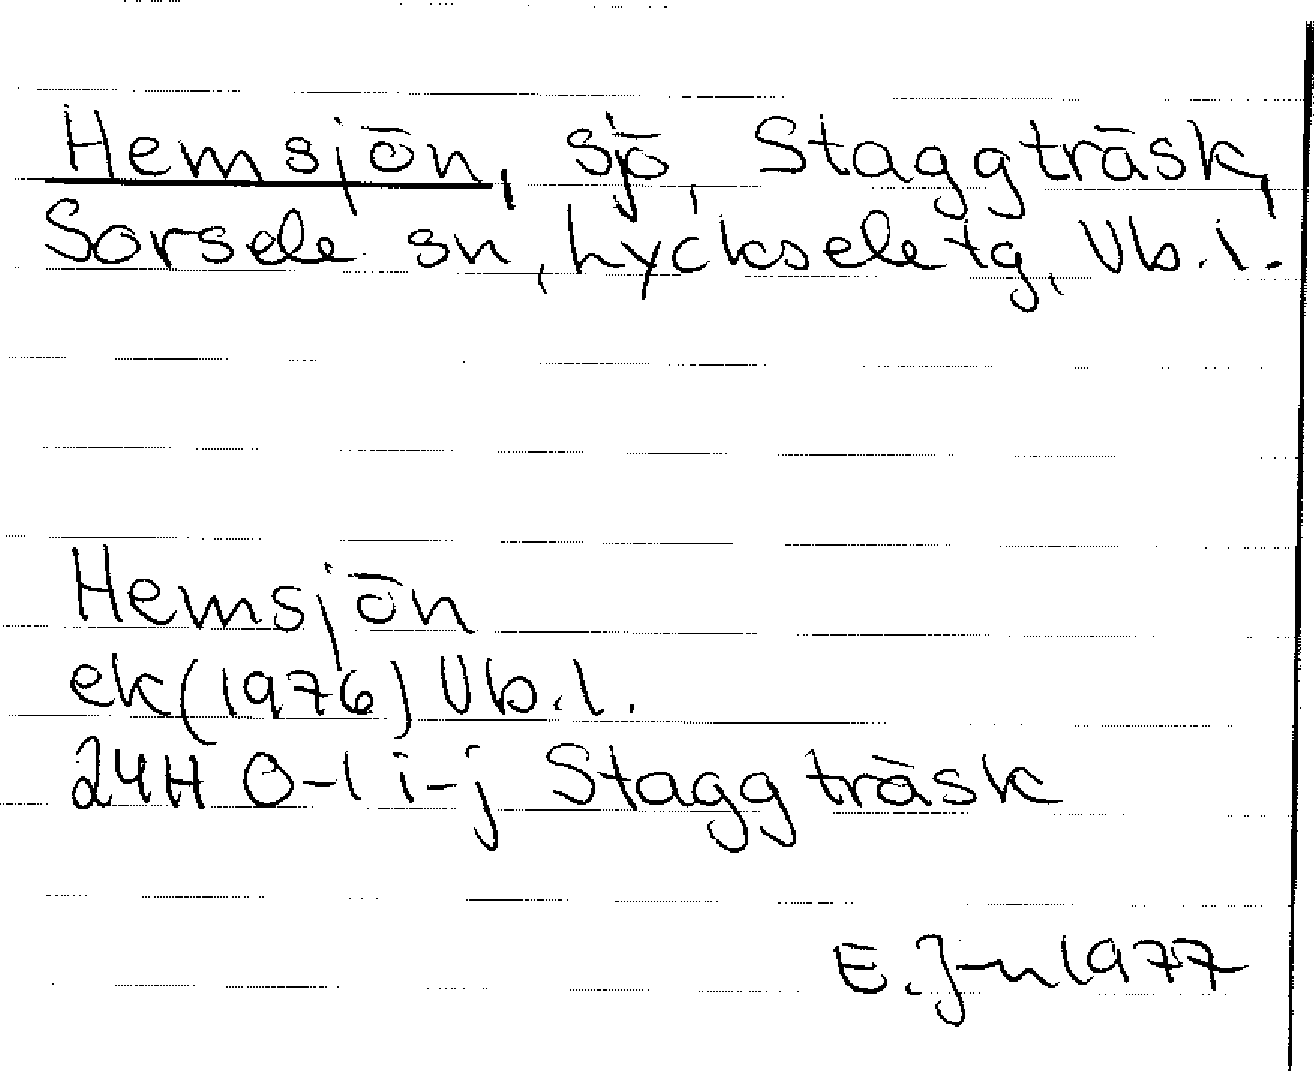 Hemsjön, sjö, Staggträsk,
Sorsele sn, Lycksele tg, Vb.l.
Hemsjön
ek (1976) Vb.l.
24H 0-1 i-j Staggträsk
E. J-n 1977